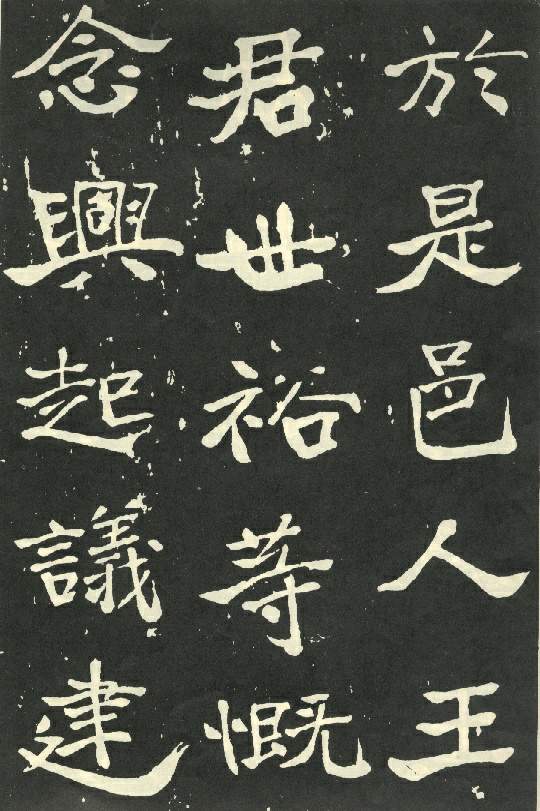 於是邑人王
君世裕等慨
念興起議建